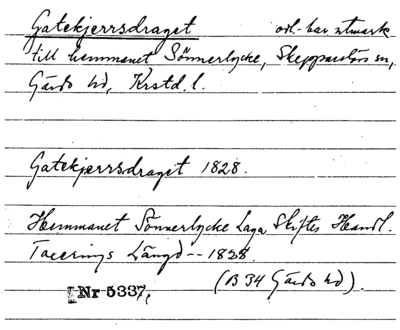 Gatekjerrsdraget odl.-bar utmark
till hemmanet Sönnerlycke, Skepparslövs sn,
Gärds hd, Krstd. l.
Gatekjærrsdraget 1828.
Hemmanet Sönnerlycke Laga Skiftes Handl.
Taxerings Längd -- 1828.
(B 34 Gärds hd).
Nr 5337,